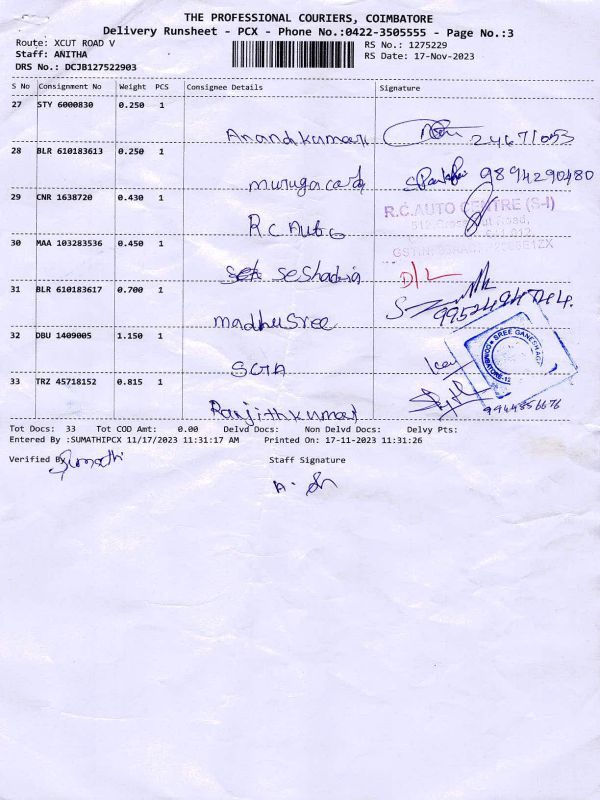 THE PROFESSIONAL COURIERS, COIMBATORE
Delivery Runsheet - PCX - Phone No.:0422-3505555 - Page No.:3
Route: XCUT ROAD V
RS No.: 1275229
Staff: ANITHA
RS Date: 17-Nov-2023
DRS No.: DCJB127522903
S No Consignment No Weight PCS Consignee Details Signature
27 STY 6000830 0.250 1
Anandkumar 24671053
28 BLR 610183613 0.250 1
muruga card 9894290480
29 CNR 1638720 0.430 1
R.C.AUTO CENTRE (S-I)
R C Auto
30 MAA 103283536 0.450 1
Seshadria D/L
31 BLR 610183617 0.700 1
madhu Sree
32 DBU 1409005 1.150 1
SREE GANESH
SGA
33 TRZ 45718152 0.815 1
Ranjithkumar 9944356676
Tot Docs: 33 Tot COD Amt: 0.00 Delvd Docs: Non Delvd Docs: Delvy Pts:
Entered By :SUMATHIPCX 11/17/2023 11:31:17 AM Printed On: 17-11-2023 11:31:26
Verified By Sumathi Staff Signature